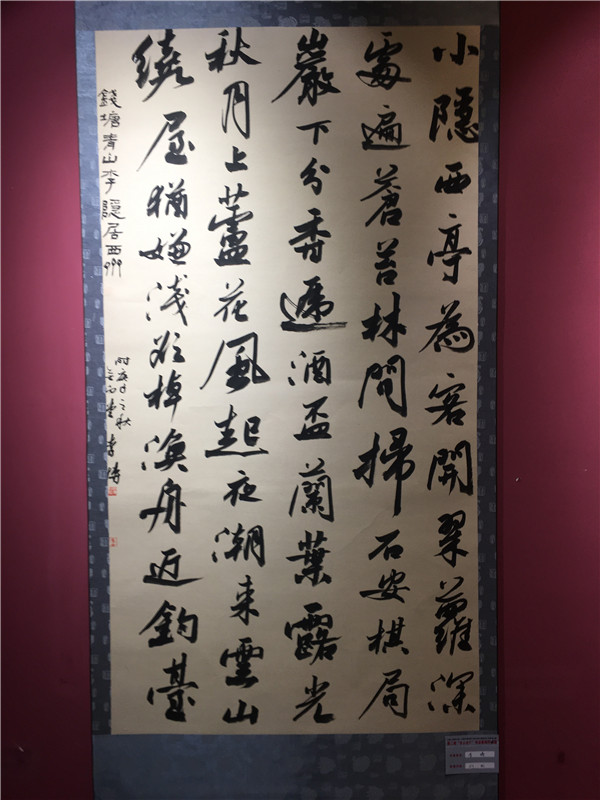 小隱西亭為客開翠蘿深
處遍蒼苔林間掃石安棋局
巖下分香遞酒盃蘭葉露光
秋月上蘆花風起夜潮來雲山
繞屋猶嫌淺欲棹漁舟近釣臺
錢塘青山李隱居西
時庚子之秋